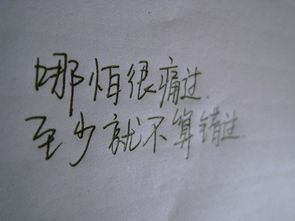 哪怕很痛过.
至少就不算错过